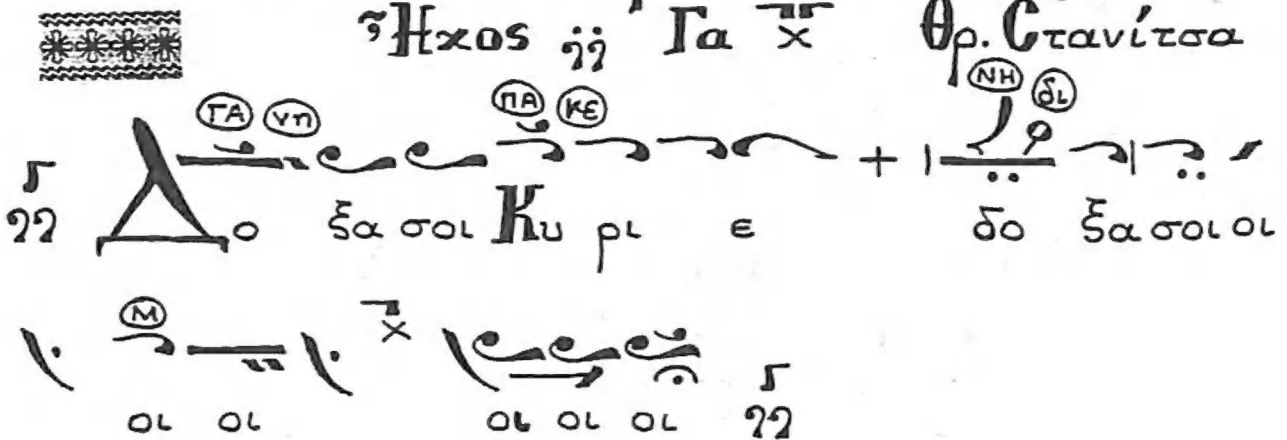 Ἦχος Γα χ Θρ. Στανίτσα
ΓΑ νη ΠΑ ΚΕ ΝΗ δι
Δο ξα σοι Κυ ρι ε δο ξα σοι οι
Μ χ
οι οι οι οι οι